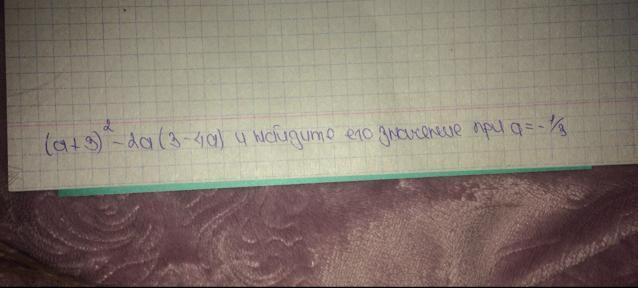 (a+3)² - 2a(3-4a) и найдите его значение при a = -1/3